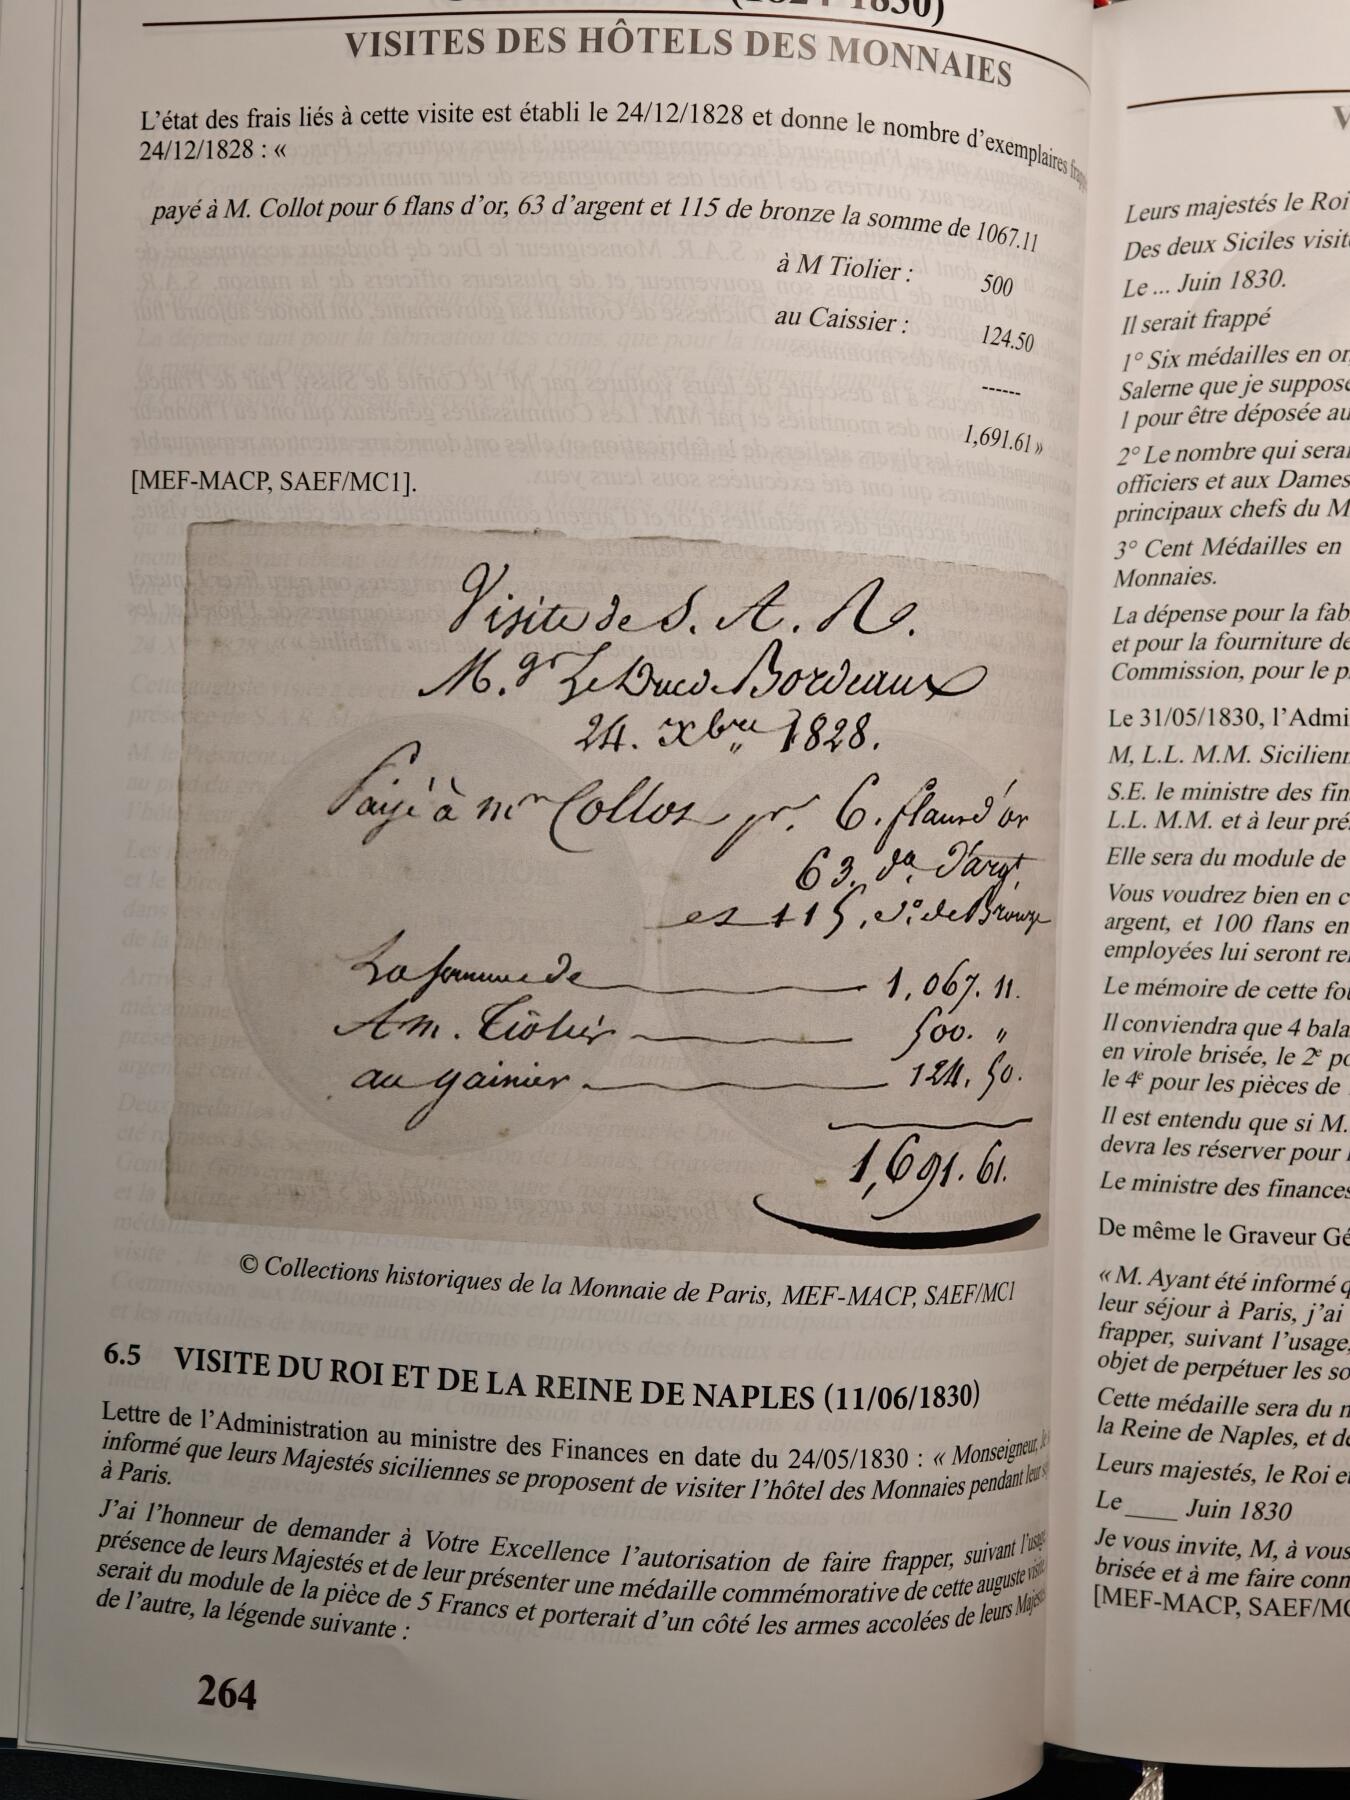 (1824-1830)
VISITES DES HÔTELS DES MONNAIES
L'état des frais liés à cette visite est établi le 24/12/1828 et donne le nombre d'exemplaires
24/12/1828 : «
payé à M. Collot pour 6 flans d'or, 63 d'argent et 115 de bronze la somme de 1067.11
à M Tiolier : 500
au Caissier : 124.50
------
1,691.61 »
[MEF-MACP, SAEF/MC1].
Visite de S. A. R.
M.gr Le Duc de Bordeaux
24. xbre 1828.
Payé à mr Collot pr. 6. flans d'or
63. do. d'argt.
et 115. do. de Bronze
La somme de 1,067. 11.
A m. Tiolier 500. "
au gainier 124. 50.
1,691. 61.
© Collections historiques de la Monnaie de Paris, MEF-MACP, SAEF/MC1
6.5 VISITE DU ROI ET DE LA REINE DE NAPLES (11/06/1830)
Lettre de l'Administration au ministre des Finances en date du 24/05/1830 : « Monseigneur,
informé que leurs Majestés siciliennes se proposent de visiter l'hôtel des Monnaies pendant leur
à Paris.
J'ai l'honneur de demander à Votre Excellence l'autorisation de faire frapper, suivant l'usage
présence de leurs Majestés et de leur présenter une médaille commémorative de cette auguste visite
serait du module de la pièce de 5 Francs et porterait d'un côté les armes accolées de leurs
de l'autre, la légende suivante :
264
Leurs majestés le Roi
Des deux Siciles
Le ... Juin 1830.
Il serait frappé
1° Six médailles en
Salerne que je
1 pour être déposée au
2° Le nombre qui
officiers et aux Dames
principaux chefs du
3° Cent Médailles en
Monnaies.
La dépense pour la
et pour la fourniture
Commission, pour le
Le 31/05/1830,
M, L.L. M.M.
S.E. le ministre des
L.L. M.M. et à leur
Elle sera du module de
Vous voudrez bien en
argent, et 100 flans en
employées lui seront
Le mémoire de cette
Il conviendra que 4
en virole brisée, le 2e
le 4e pour les pièces de
Il est entendu que si M.
devra les réserver pour
Le ministre des finances
De même le Graveur
« M. Ayant été informé
leur séjour à Paris, j'ai
frapper, suivant l'usage,
objet de perpétuer les
Cette médaille sera du
la Reine de Naples, et
Leurs majestés, le Roi
Le ____ Juin 1830
Je vous invite, M, à
brisée et à me faire
[MEF-MACP,